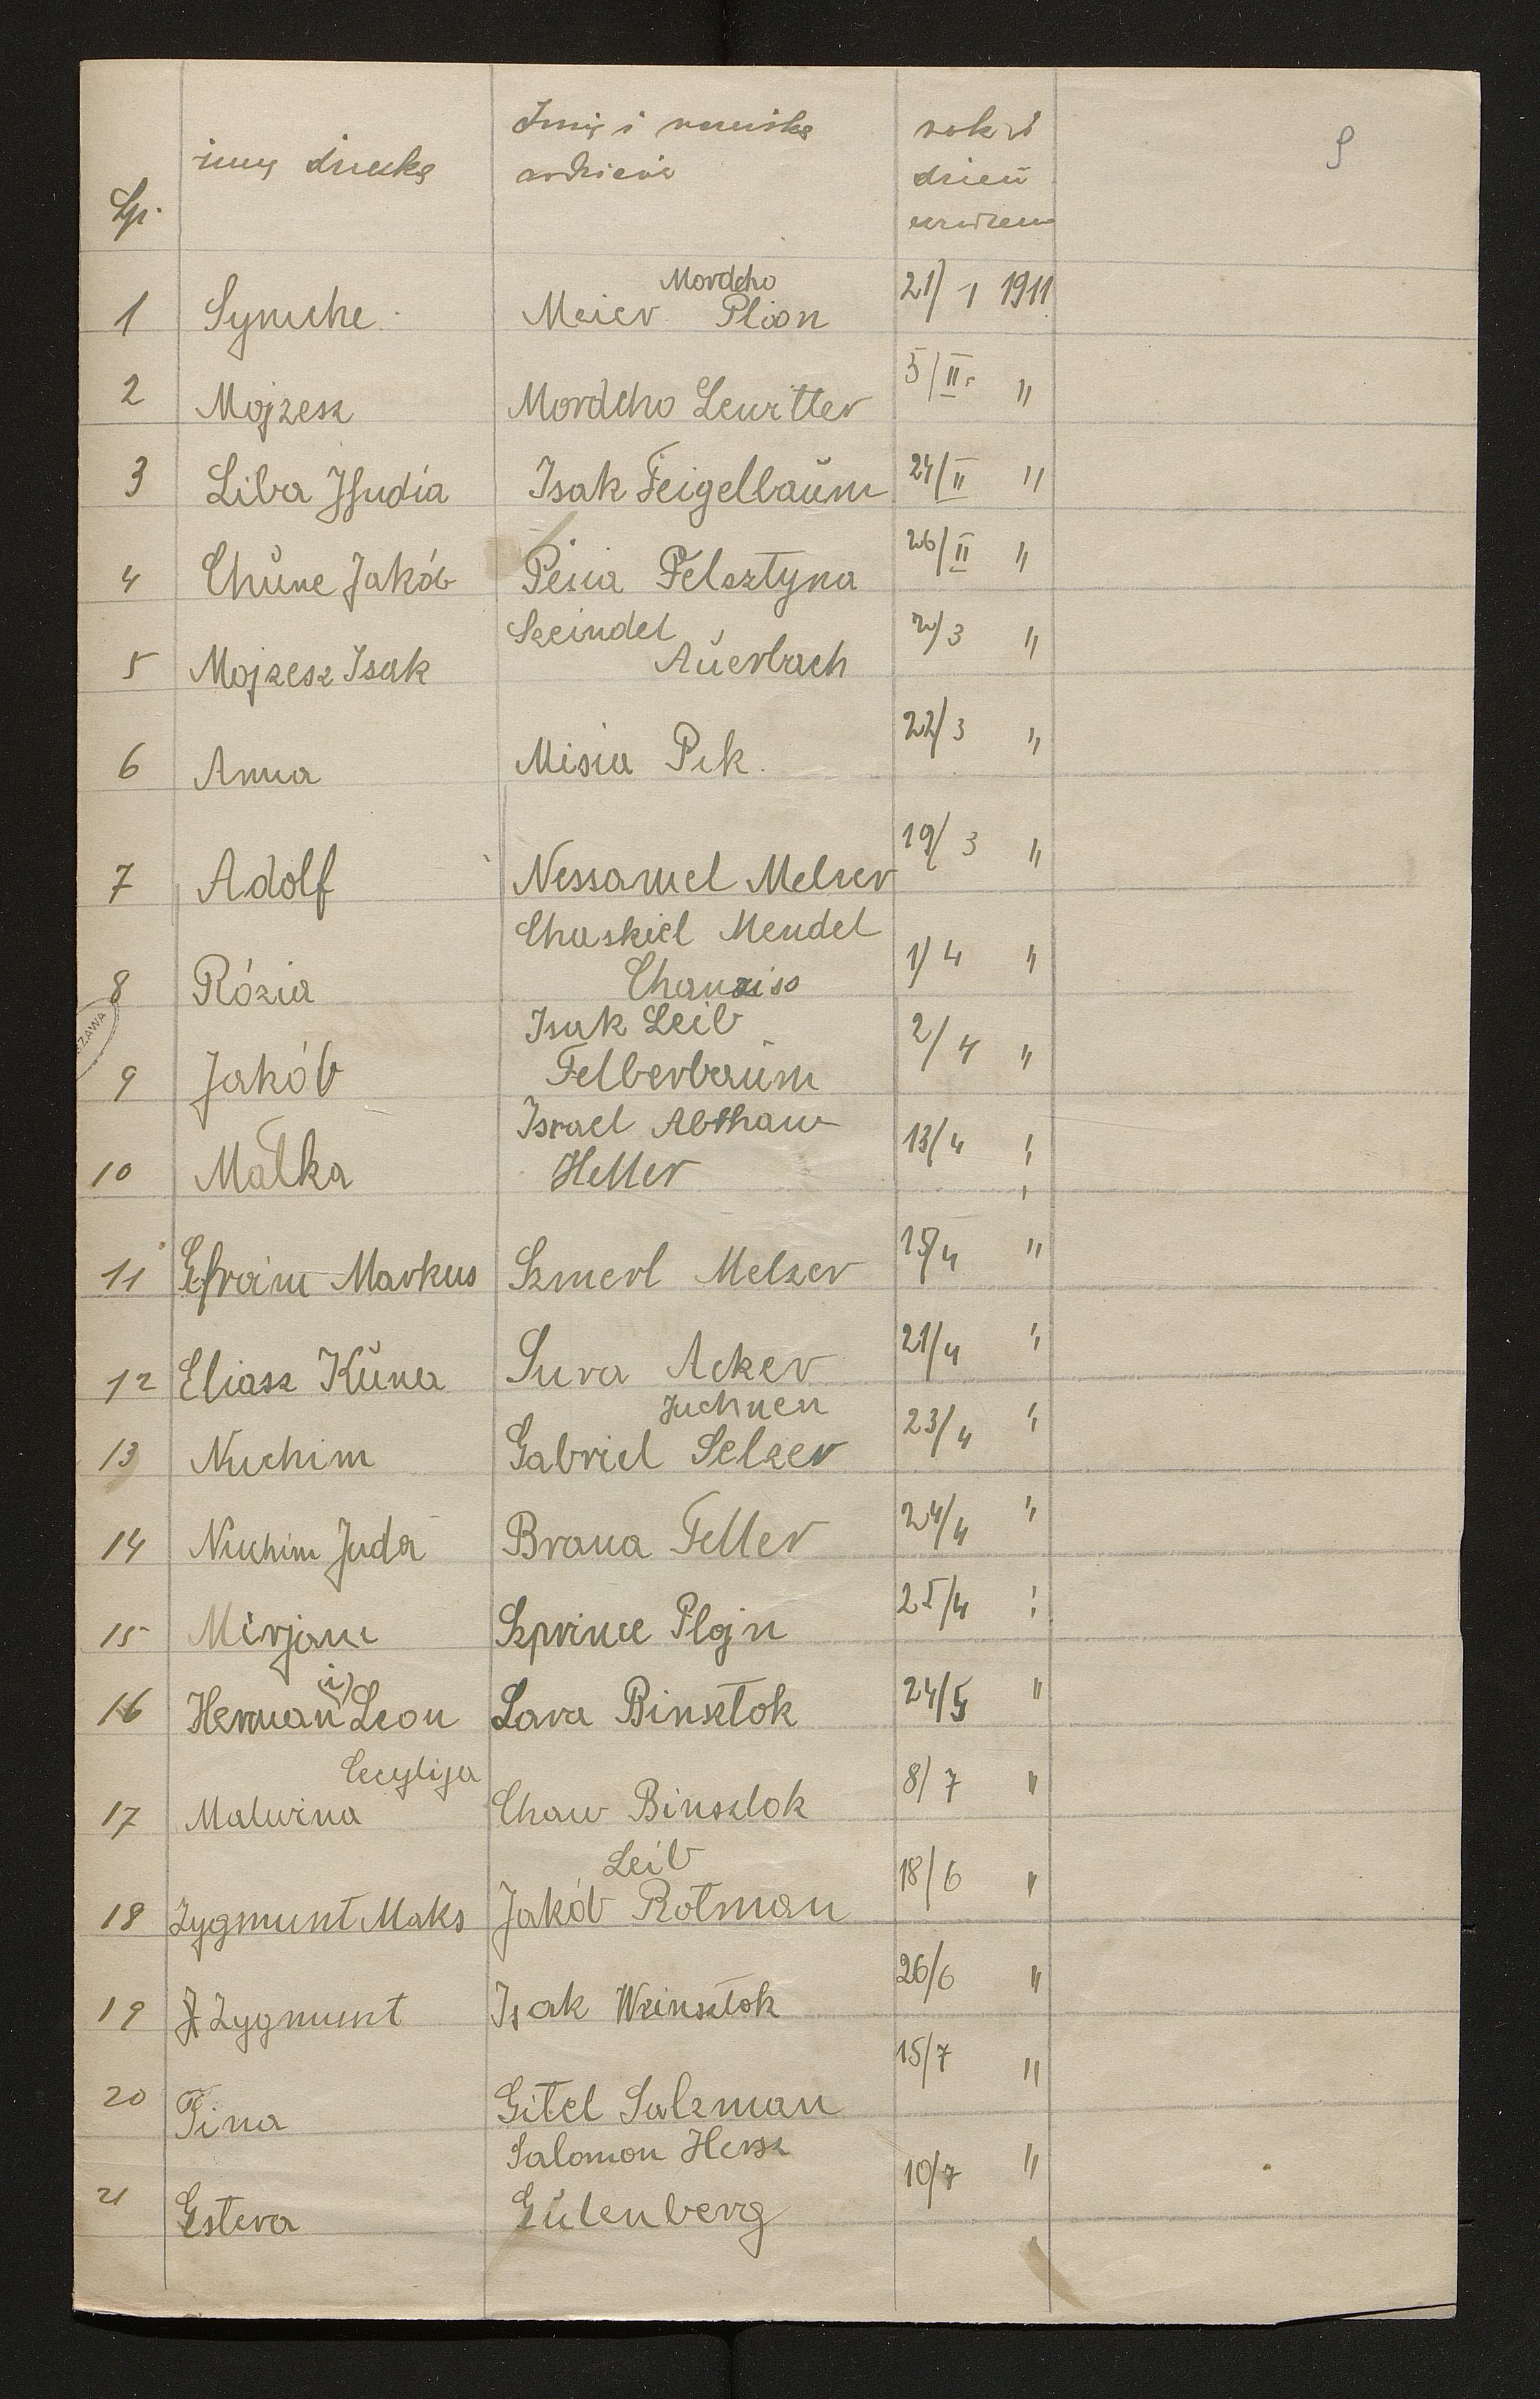 Lp. imię dziecka Imię i nazwisko rodzica rok i dzień urodzenia 9
1 Symche Meier Mordcho Plion 21/1 1911
2 Mojzesz Mordcho Lewitter 5/II "
3 Liba Judia Isak Feigelbaŭm 24/II "
4 Chŭne Jakób Pesia Felsztyna 26/II "
5 Mojzesz Isak Szeindel Aŭerbach 2/3 "
6 Anna Misia Pik. 22/3 "
7 Adolf Nessamel Melzer 19/3 "
8 Rózia Chaskiel Mendel Chanziss 1/4 "
9 Jakób Isak Leib Felberbaŭm 2/4 "
10 Malka Israel Abraham Heller 13/4 "
11 Efraim Markus Szmerl Melzer 15/4 "
12 Eliasz Kŭna Sura Acker 21/4 "
13 Nuchim Gabriel Juchnen Selzer 23/4 "
14 Nuchim Juda Brana Feller 24/4 "
15 Mirjam Szprince Plojn 25/4 "
16 Herman (i) Leon Sara Binsztok 24/5 "
17 Malwina Cecylija Chaw Binsztok 8/7 "
18 Zygmunt Maks Jakób Leib Rotman 18/6 "
19 Zygmunt Isak Weinsztok 26/6 "
20 Tina Gitel Salzman 15/7 "
21 Estera Salomon Hersz Gŭtenberg 10/7 "
SZAWA